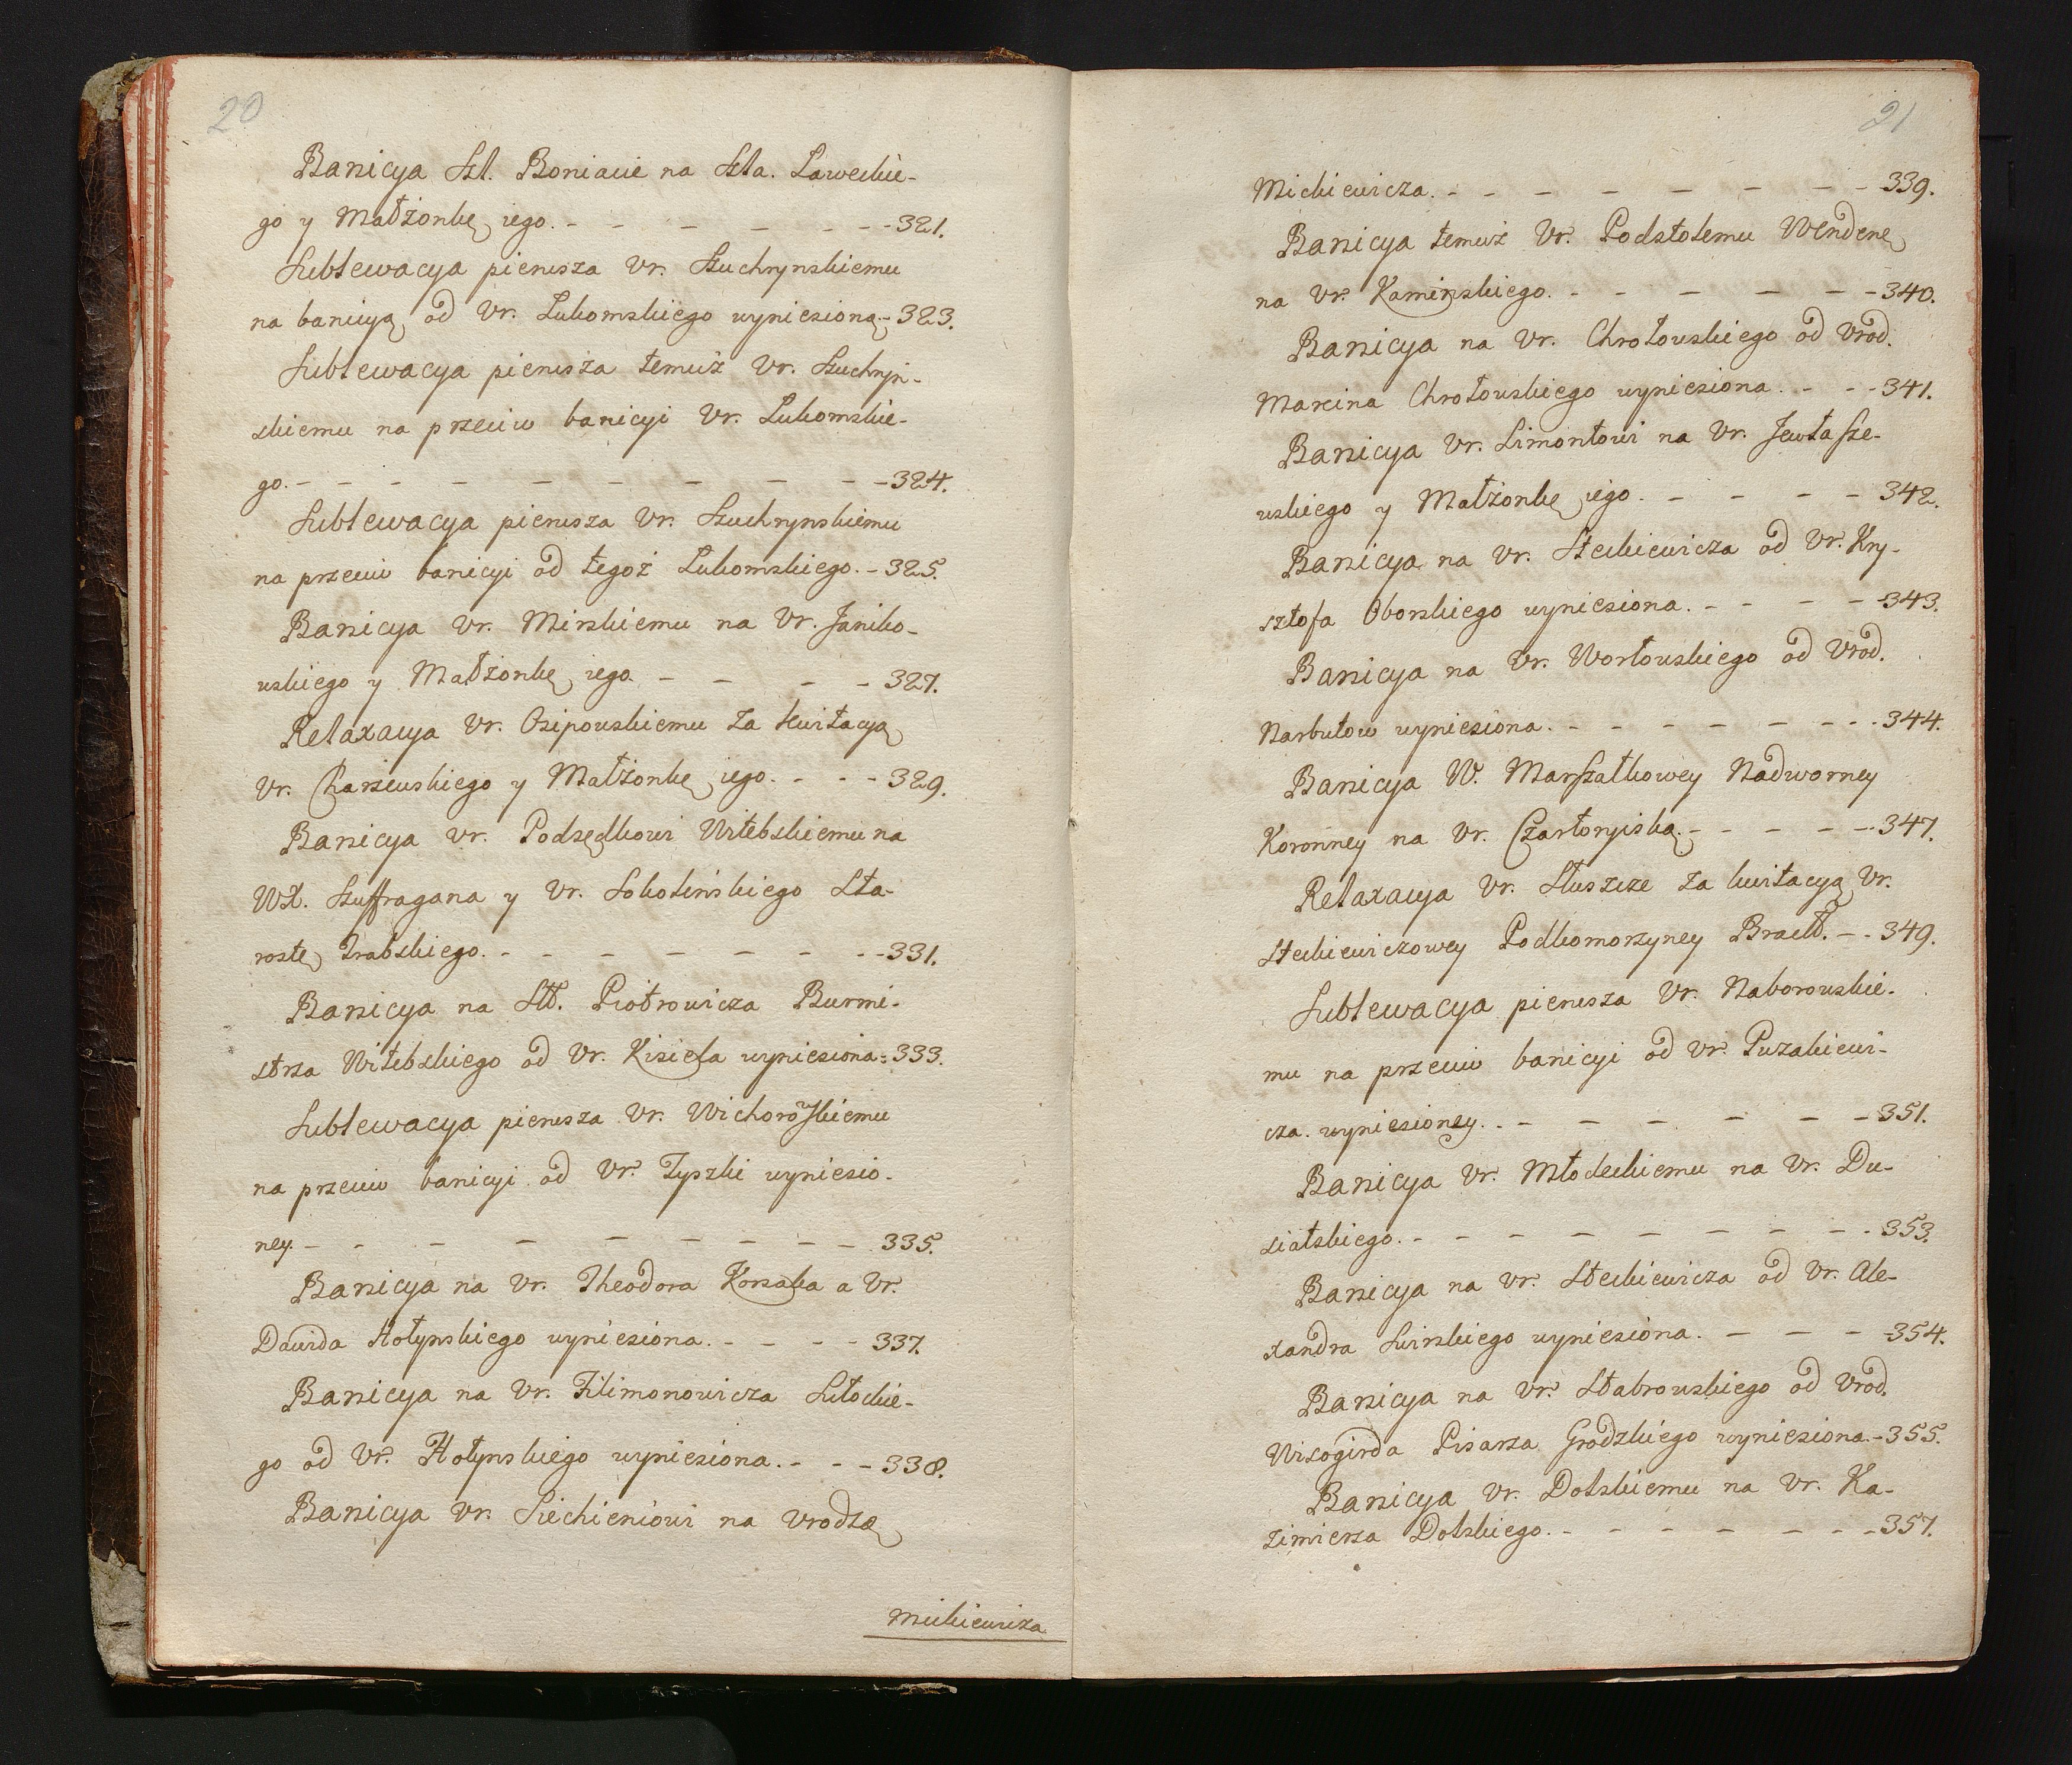 20
Banicya Szl. Boniacie na Szla. Laweckie-
go y Małżonkę iego. - - - - - - - 321.
Sublewacya pierwsza Vr. Szuchrynskiemu
na banicyą od Vr. Lukomskiego wyniesioną - 323.
Sublewacya pierwsza temuż Vr. Szuchryn-
skiemu na przeciw banicyi Vr. Lukomskie-
go. - - - - - - - - - - 324.
Sublewacya pierwsza Vr. Szuchrynskiemu
na przeciw banicyi od tegoż Lukomskiego. - 325.
Banicya Vr. Mirskiemu na Vr. Janiko-
wskiego y Małżonkę iego - - - - 327.
Relaxacya Vr. Osipowskiemu za kwitacyą
Vr. Charzewskiego y Małżonkę iego. - - - 329.
Banicya Vr. Podsędkowi Witebskiemu na
WX. Szuffragana y Vr. Sokolińskiego Sta-
rostę Trabskiego. - - - - - - - - 331.
Banicya na Sł. Piotrowicza Burmi-
strza Witebskiego od Vr. Kisiela wyniesiona - 333.
Sublewacya pierwsza Vr. Wichorowskiemu
na przeciw banicyi od Vr. Tyszki wyniesio-
ney. - - - - - - - - - 335.
Banicya na Vr. Theodora Korsaka a Vr.
Dawida Hołynskiego wyniesiona. - - - - 337.
Banicya na Vr. Filimonowicza Sutockie-
go od Vr. Hołynskiego wyniesiona. - - - 338.
Banicya Vr. Siechieniowi na Vrodzę
Mickiewicza
21
Mickiewicza. - - - - - - - - 339.
Banicya temuż Vr. Podstolemu Wendenę
na Vr. Kaminskiego. - - - - - - 340.
Banicya na Vr. Chrołowskiego od Vrod.
Marcina Chrołowskiego wyniesiona. - - - 341.
Banicya Vr. Limontowi na Vr. Jewłasze-
wskiego y Małżonkę iego. - - - - 342.
Banicya na Vr. Steckiewicza od Vr. Kry-
sztofa Oborskiego wyniesiona. - - - - 343.
Banicya na Vr. Worłowskiego od Vrod.
Narbutow wyniesiona. - - - - - - - - 344.
Banicya W. Marszałkowey Nadworney
Koronney na Vr. Czartoryiską. - - - - - 347.
Relaxacya Vr. Słuszcze za kwitacyą Vr.
Steckiewiczowey Podkomorzyney Bracł. - - 349.
Sublewacya pierwsza Vr. Naborowskie-
mu na przeciw banicyi od Vr. Puzakiewi-
cza. wyniesioney. - - - - - - - 351.
Banicya Vr. Młodeckiemu na Vr. Du-
siatskiego. - - - - - - - - - 353.
Banicya na Vr. Steckiewicza od Vr. Ale-
xandra Swirskiego wyniesiona. - - - - 354.
Banicya na Vr. Stabrowskiego od Vrod.
Wisogirda Pisarza Grodzkiego wyniesiona. - 355.
Banicya Vr. Dolskiemu na Vr. Ka-
zimierza Dolskiego. - - - - - - - - 357.